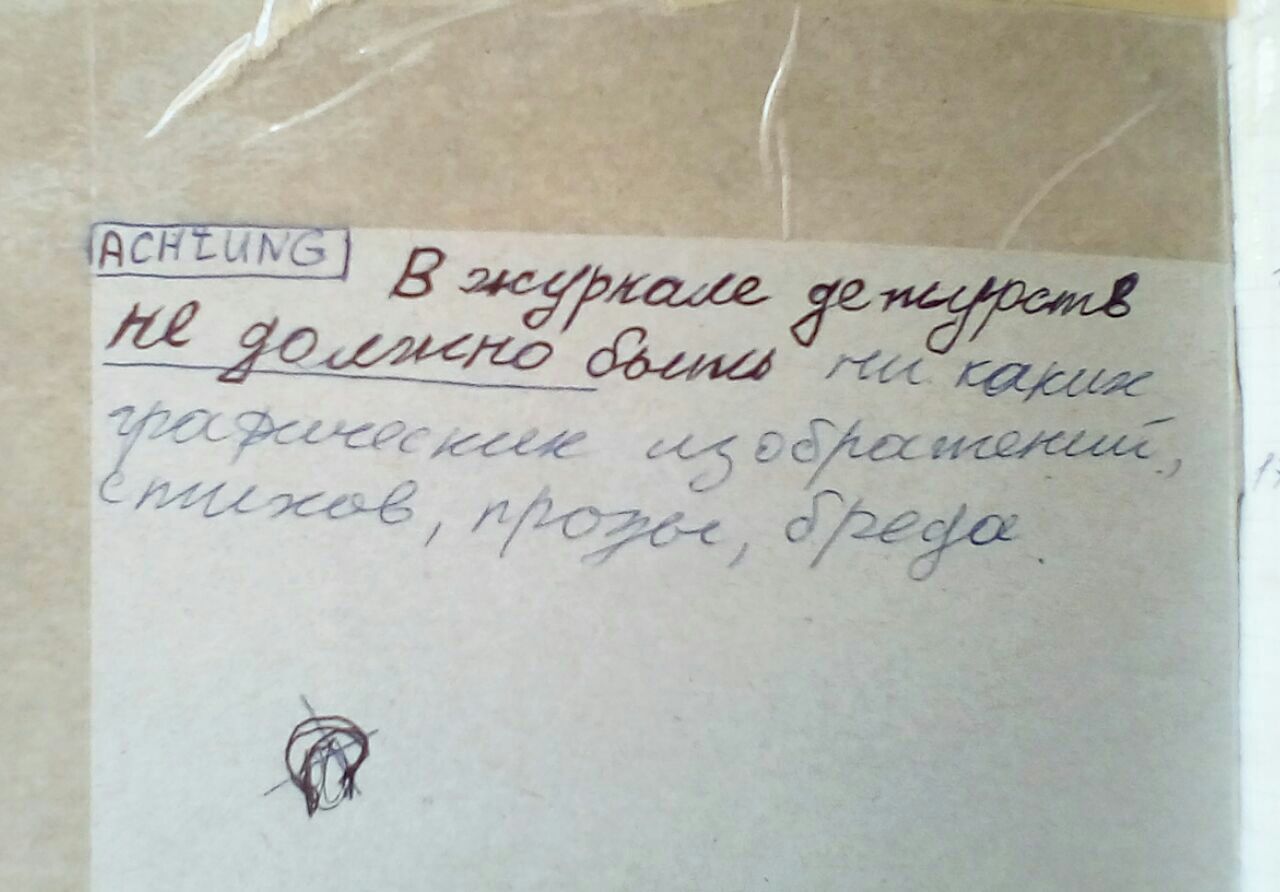 ACHTUNG В журнале дежурств
не должно быть ни каких
графических изображений,
стихов, прозы, бреда